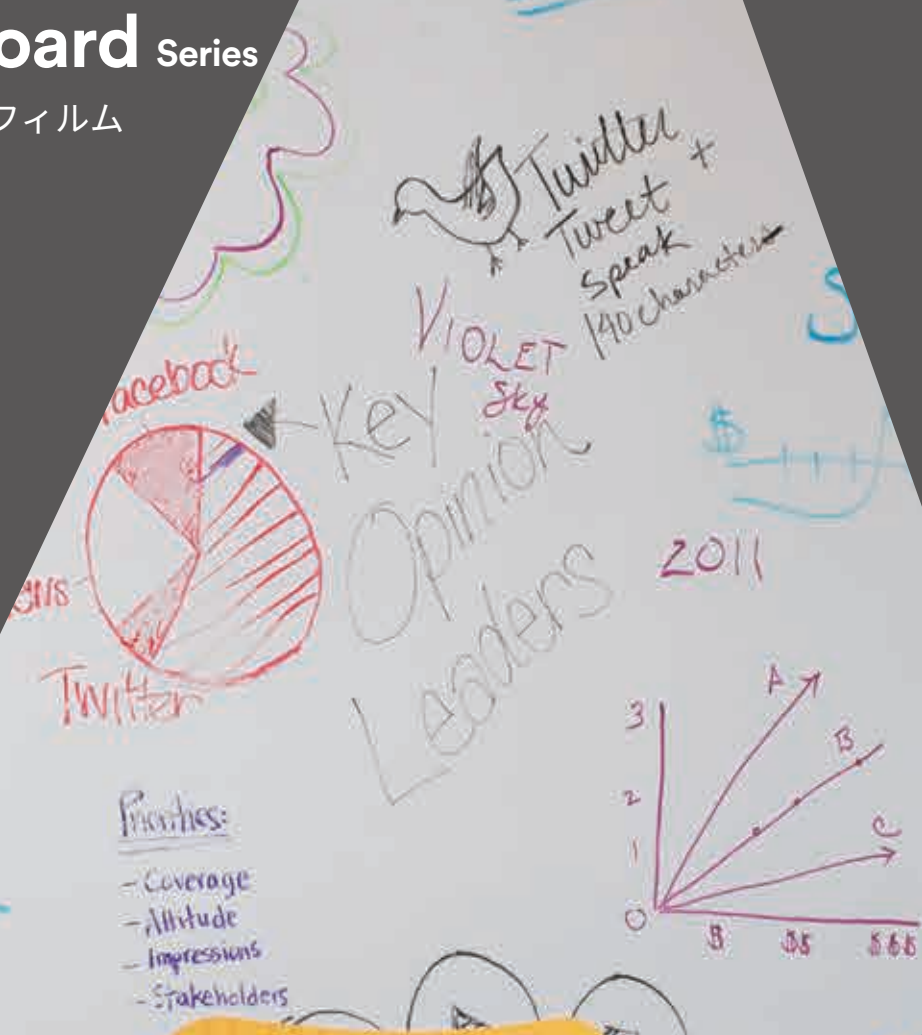 oard Series
フィルム
Twitter +
Tweet
Speak
140 characters
VIOLET
Sky
acebook
Key
Opinion
Leaders
$
2011
Twitter
A
3
B
2
C
1
0
$ $$ $$$
Priorities:
- Coverage
- Attitude
- Impressions
- Stakeholders